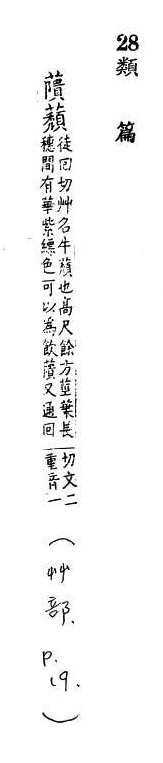 28類篇
藬蘈徒回切艸名牛蘈也高尺餘方莖葉長
穗間有華紫縹色可以為飲藬又通回
切文二
重音一
(艸部. p.19.)